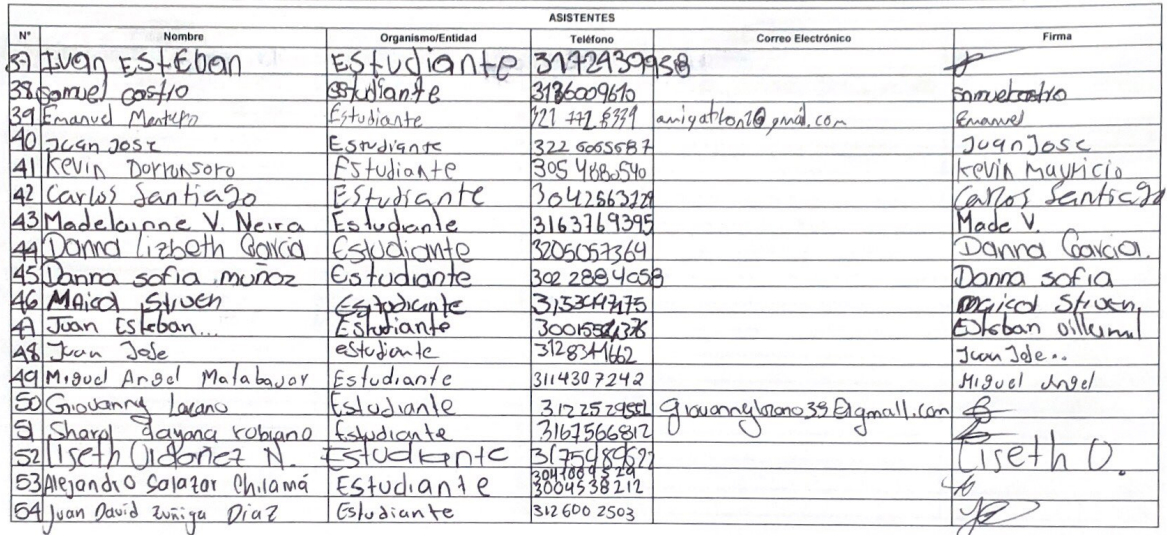 ASISTENTES
N° Nombre Organismo/Entidad Teléfono Correo Electrónico Firma
37 Ivan EstEban Estudiante 3172439958
38 samuel castro estudiante 3136009610 samuelcastro
39 Emanuel Estudiante 321 772 8339 Emanuel
40 Juan Jose Estudiante 322 6065587 Juan Jose
41 Kevin Dorronsoro Estudiante 305 4880540 Kevin Mauricio
42 Carlos Santiago Estudiante 3042563729 Carlos Santiago
43 Madelainne V. Neira Estudiante 3163769395 Made V.
44 Danna lizbeth Garcia Estudiante 3205057364 Danna Garcia.
45 Danna sofia muñoz Estudiante 302 2884058 Danna sofia
46 Maicol Stiven Estudiante maicol Stiven
47 Juan Esteban... Estudiante Esteban
48 Juan Jose estudiante 3128341662 Juan Jose..
49 Miguel Angel Matabajoy Estudiante 3114307242 Miguel Angel
50 Giovanny Lozano Estudiante
51 Sharol dayana robiano Estudiante 3167566812
52 liseth Ordoñez N. Estudiante 3175489622 Liseth O.
53 Alejandro Salazar Chilamá Estudiante 3004538212
54 Juan David Zuñiga Diaz Estudiante 312600 2503